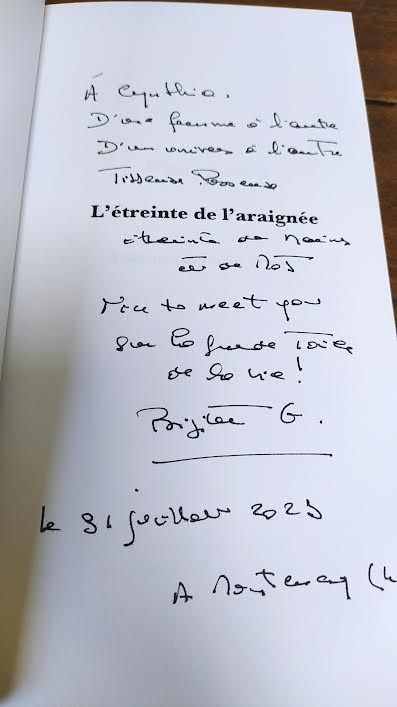 À Cynthia.
D'une femme à l'autre
D'un univers à l'autre
Tisseuse
L'étreinte de l'araignée
étreinte de mains
et de mots
Nice to meet you
sur la grande Toile
de la vie !
Brigitte G.
le 31 juillet 2025
A (